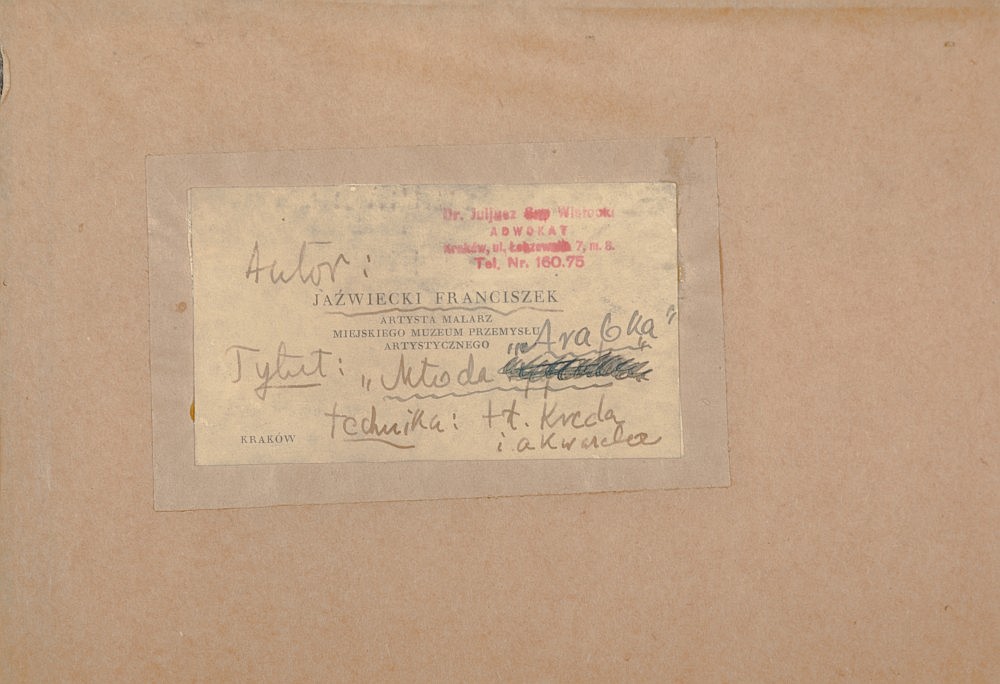 Dr. Juljusz Wisłocki
ADWOKAT
Kraków, ul. 7, m. 8.
Tel. Nr. 160.75
Autor:
JAŹWIECKI FRANCISZEK
ARTYSTA MALARZ
MIEJSKIEGO MUZEUM PRZEMYSŁU
ARTYSTYCZNEGO
„Arabka"
Tytuł: „Młoda
technika: tł. Kreda
i akwarela
KRAKÓW